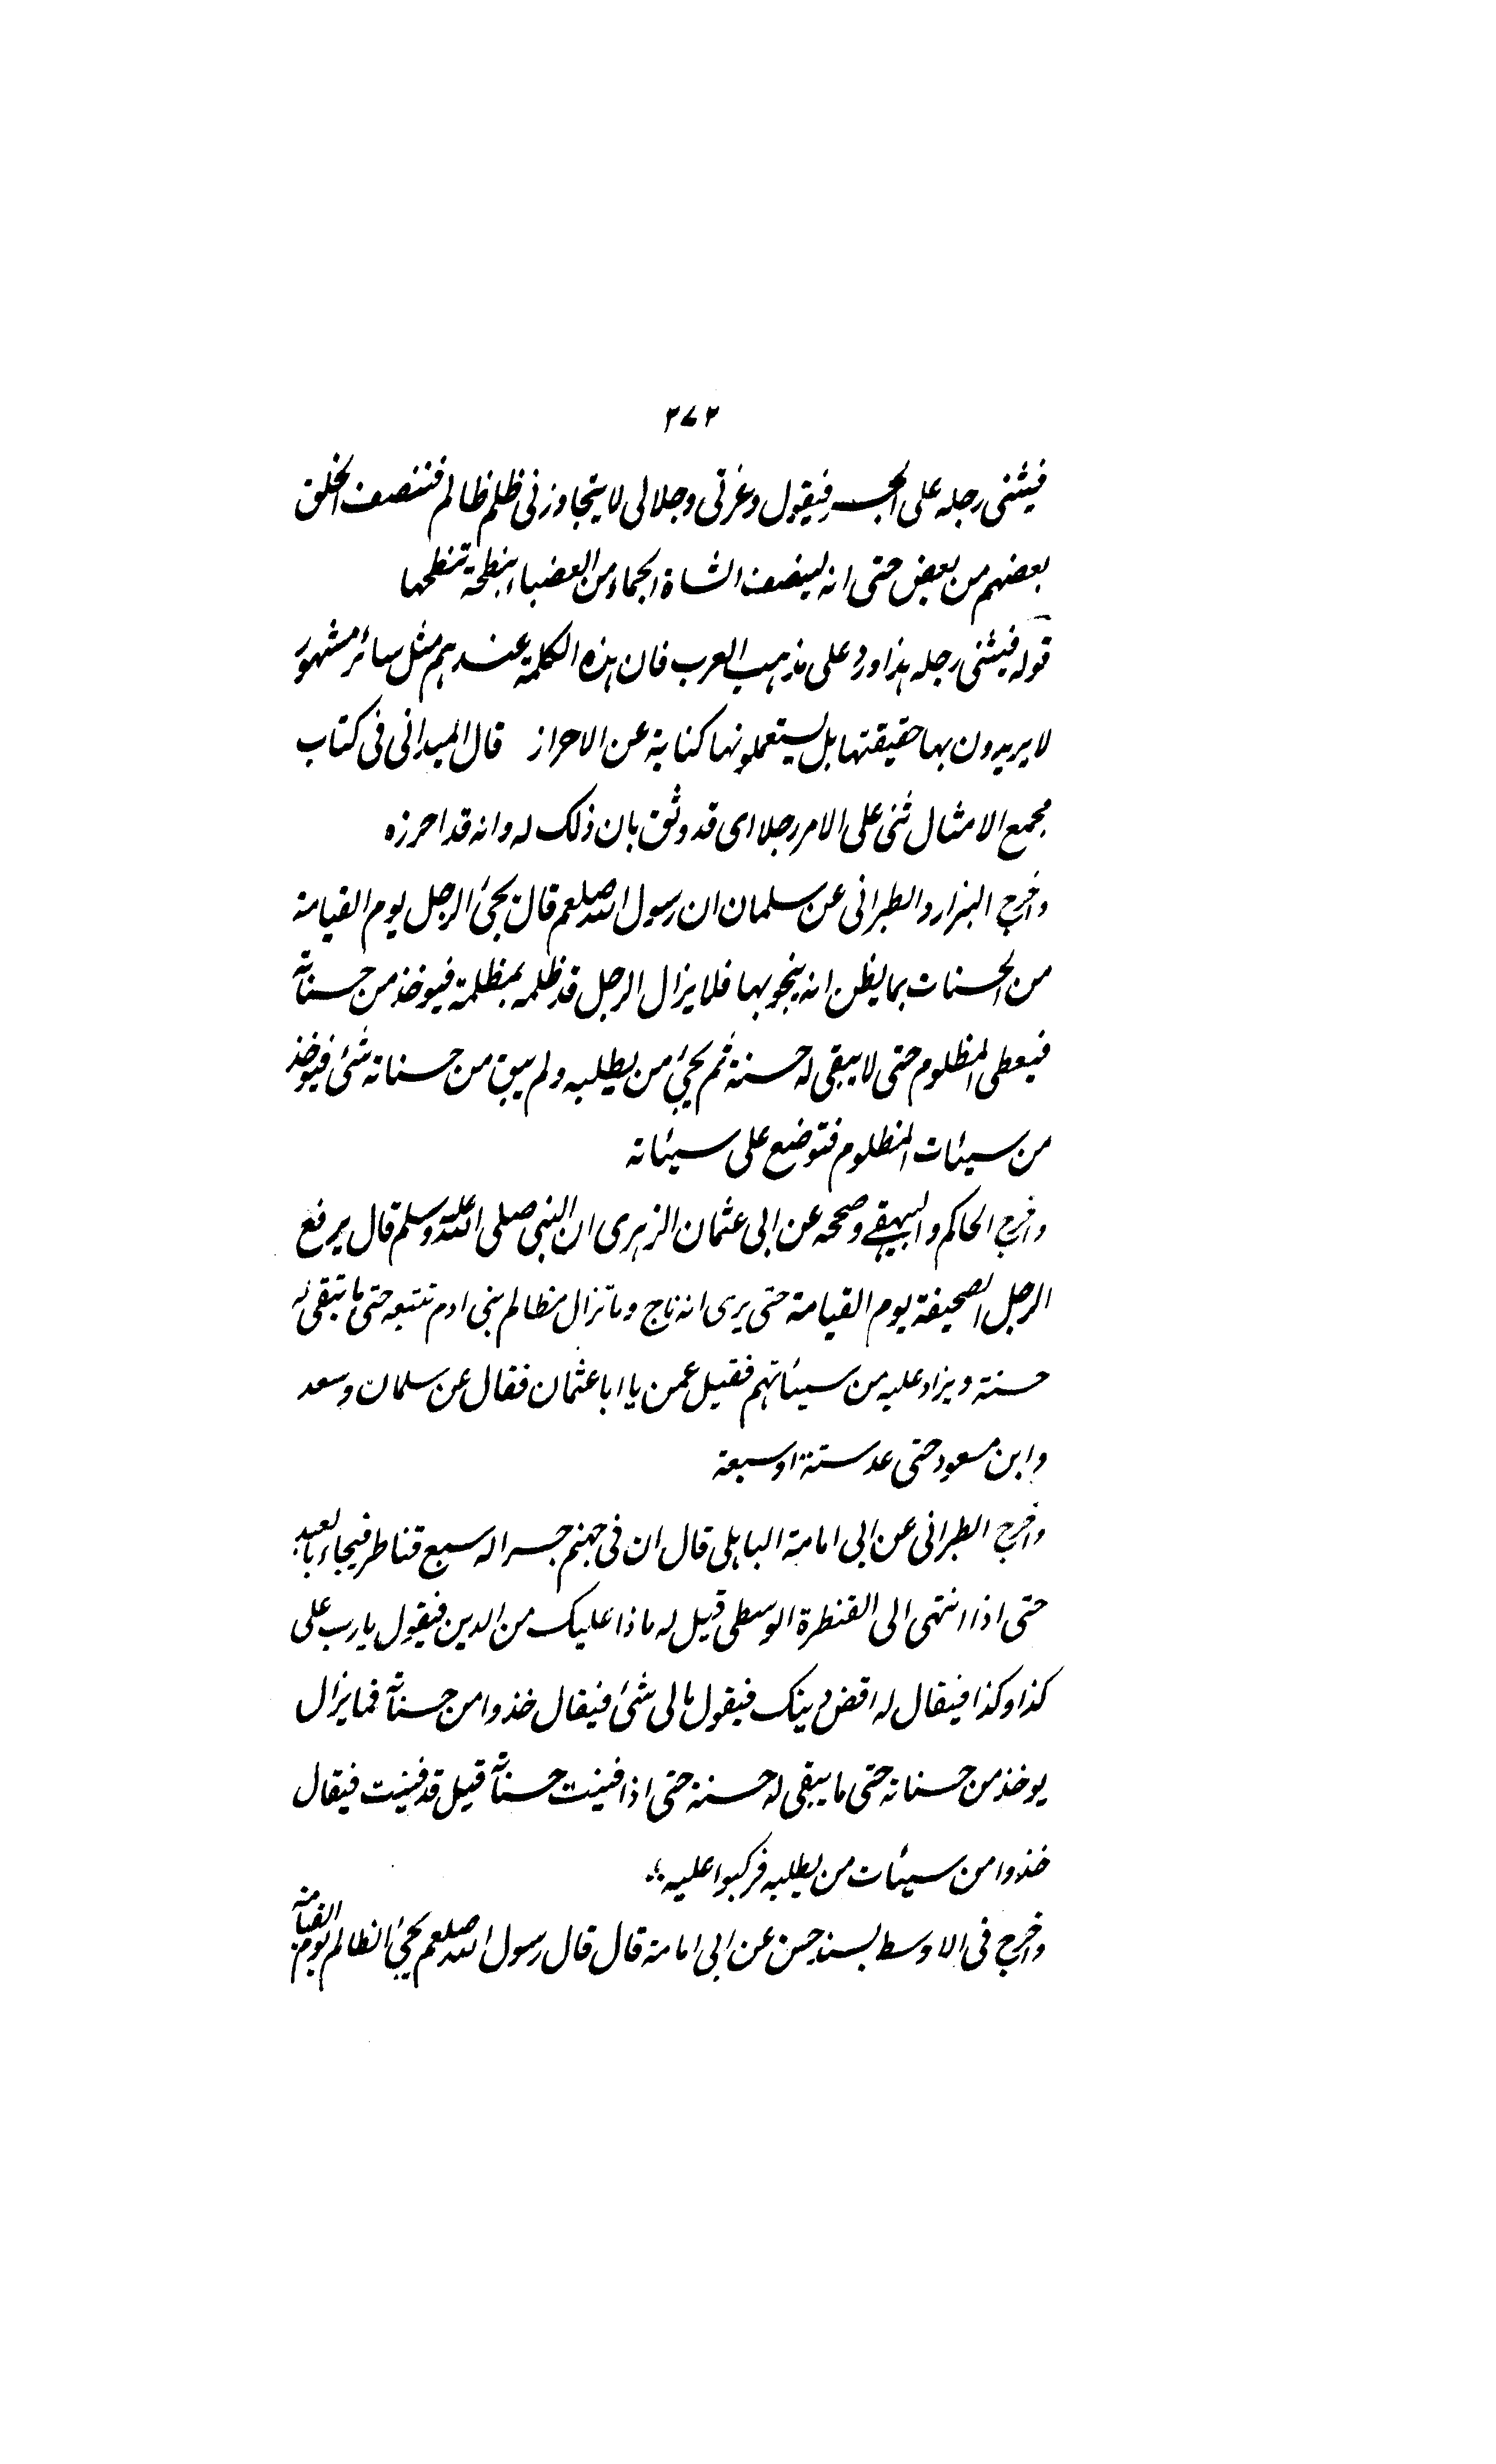 ۲۷۲
فیثنی رجله علی الجسر فیقول وعزتی وجلالی لا یتجاوزنی ظلم ظالم فتنصف الخلق
بعضهم من بعض حتی انه لینصف الشاة الجماء من العضباء بنطحة تنطحها
قوله فیثنی رجله هذا ورد علی مذهب العرب فان هذه الکلمة عندهم مثل سائر مشهور
لا یریدون بها حقیقتها بل یستعملونها کنایة عن الاحراز قال المیدانی فی کتاب
مجمع الامثال ثنی علی الامر رجلا ای قد وثق بان ذلک له وانه قد احرزه
واخرج البزار والطبرانی عن سلمان ان رسول الله صلعم قال یجیٔ الرجل یوم القیامة
من الحسنات بما یظن انه ینجو بها فلا یزال الرجل قد ظلمه بمظلمة فیوخذ من حسناته
فیعطی المظلوم حتی لا یبقی له حسنة ثم یجیٔ من یطلبه ولم یبق من حسناته شیٔ فیوخذ
من سیئات المظلوم فتوضع علی سیئاته
واخرج الحاکم والبیهقے وصححه عن ابی عثمان الزهری ان النبی صلی الله علیه وسلم قال یرفع
الرجل الصحیفة یوم القیامة حتی یری انه ناج وما تزال مظالم بنی ادم تتبعه حتی ما تبقی له
حسنة ویزاد علیه من سیئاتهم فقیل عمن یا ابا عثمان فقال عن سلمان وسعد
وابن مسعود حتی عد ستة او سبعة
واخرج الطبرانی عن ابی امامة الباهلی قال ان فی جهنم جسرا له سبع قناطر فیجاء بالعبد
حتی اذا انتهی الی القنطرة الوسطی قیل له ماذا علیک من الدین فیقول یا رب علی
کذا وکذا فیقال له اقض دینک فیقول مالی شیٔ فیقال خذوا من حسناته فما یزال
یوخذ من حسناته حتی ما یبقی له حسنة حتی اذا فنیت حسناته قیل قد فنیت فیقال
خذوا من سیئات من یطلبه فرکبوا علیه
واخرج فی الاوسط بسند حسن عن ابی امامة قال قال رسول الله صلعم یجیٔ الظالم یوم القیامة